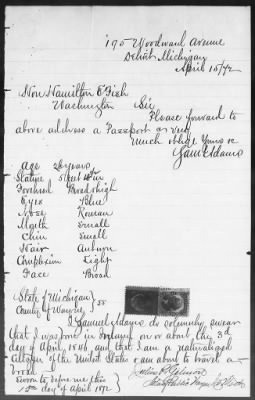 195 Woodward Avenue
Detroit Michigan
April 15/72
Hon Hamilton Fish
Washington Sir
Please forward to
above address a Passport as
Much oblige Yours &c
Saml Adams
Age 26 years
Stature 5 feet
Forehead Broad & high
Eyes Blue
Nose Roman
Mouth Small
Chin Small
Hair Auburn
Complexion Light
Face Broad
State of Michigan } ss
County of Wayne
I Samuel Adams do solemnly swear
that I was born in on or about the 3d
day of April, 1846, and that I am a naturalised
citizen of the United States & am about to travel a-
broad
Sworn to before me this
15th day of April 1872